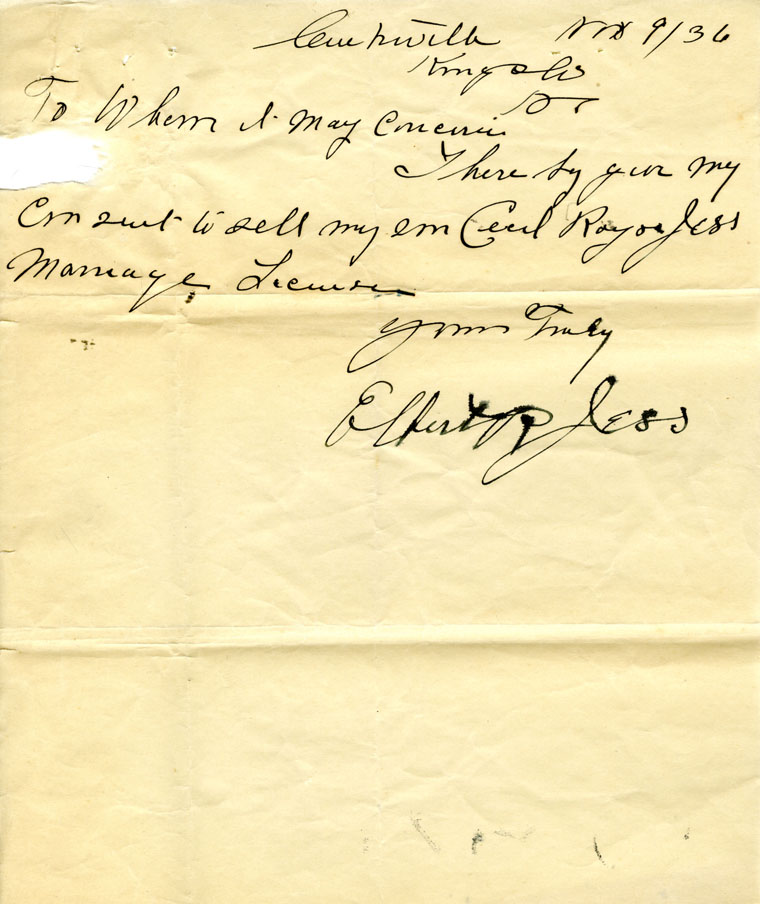 Centreville Nov 9/36
Kings Co
To Whom it May Concern
I here by give my
Consent to sell my son Cecil Jess
Marriage License
Yours Truly
Elbert R Jess